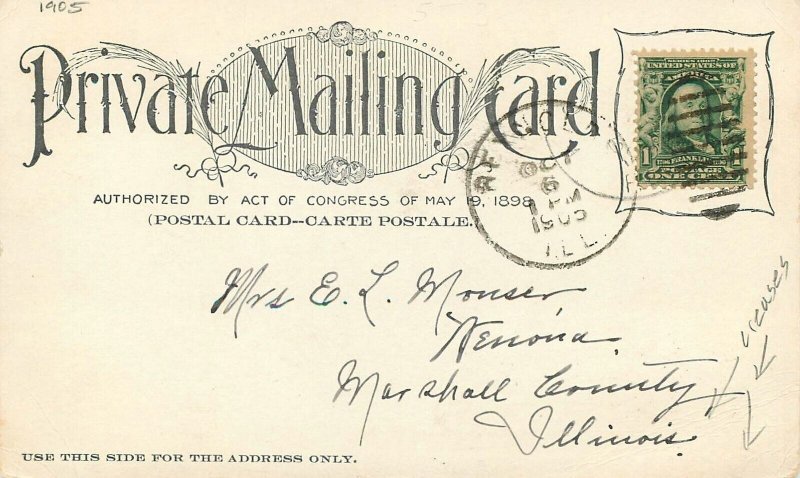 1905
Private Mailing Card
SERIES 1902
UNITED STATES OF
AMERICA
1 FRANKLIN 1
POSTAGE
ONE CENT
OCT
6
1 PM
1905
ILL.
AUTHORIZED BY ACT OF CONGRESS OF MAY 19, 1898
(POSTAL CARD--CARTE POSTALE.
Mrs E. L. Monser
Wenona
Marshall County
Illinois.
creases
USE THIS SIDE FOR THE ADDRESS ONLY.